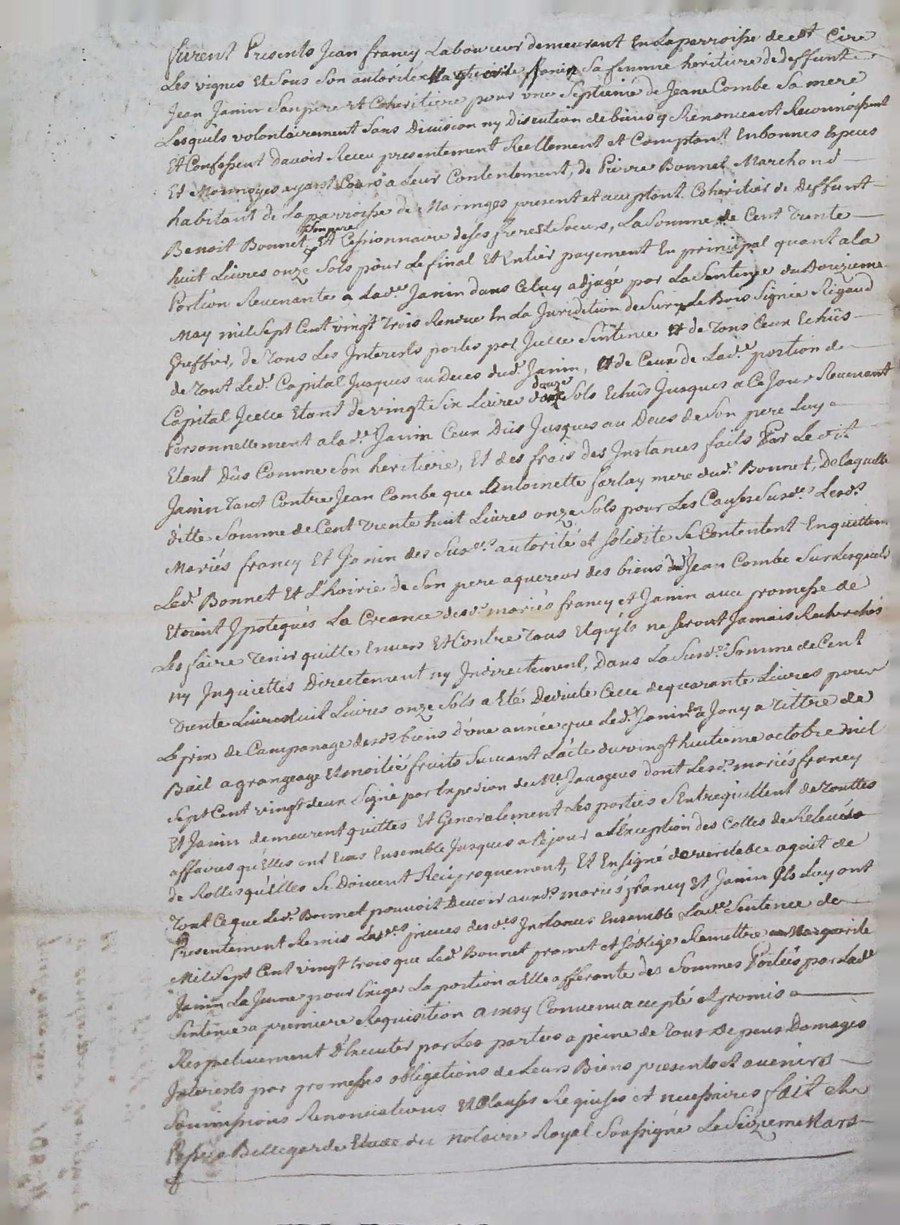 furent Presents Jean francy Laboureur demeurant En La parroisse de st Cire
Les vignes Et Sous Son autorité Janin Sa femme heritiere de deffunt
Jean Janin Son pere et Coheritiere pour une Septieme de Jeane Combe Sa mere
Lesquels volontairement Sans Division ny Discution de biens y Renoncant Reconnoissent
Et Confessent davoir Receu presentement Reellement et Comptant En bonnes Especes
Et Monnoyes ayant Cours a Leur Contentement, de Pierre Bonnet Marchand
habitant de La parroisse de Maringes present et acceptant Coheritier de Deffunt
Benoit Bonnet Son pere Et Cessionnaire de Ses freres Et Soeurs, La Somme de Cent Trente
huit Livres onze Sols pour Le final Et Entier payement En principal quant a la
Portion Revenante a Lade. Janin dans Celuy adjugé par La Sentence du Douzieme
May mil Sept Cent vingt Trois Rendue En La Juridiction de Sury Le Bois Signée Rigaud
Greffier, de Tous Les Interests portes par Jcelle Sentence et de Tous Ceux Echûs
de Tout Led. Capital Jusques au Deces dud. Janin, et de Ceux de Lade. portion de
Capital Jcelle Etant de vingt Six Livres douze Sols Echûs Jusques a Ce Jour Revenant
Personnellement a la de. Janin Ceux Dûs Jusques au Deces de Son pere Luy
Etant Dûs Comme Son heritiere, Et des frais des Instances faits Par Le dit
Janin Tant Contre Jean Combe que Antoinette mere dud. Bonnet, De laquelle
ditte Somme de Cent Trente huit Livres onze Sols pour Les Causes Susdes. Lesds.
Mariés francy Et Janin des Susdes. autorité et Solidité Se Contentent En quittent
Led. Bonnet Et L'hoirie de Son pere aquereur des biens dud Jean Combe Sur Lesquels
Etoient Jpotequés La Creance desds. mariés francy et Janin avec promesse de
Les faire Tenir quitte Envers Et Contre Tous Et quyls ne Seront Jamais Recherchés
ny Jnquiettés Directement ny Jndirectement, Dans La Susde. Somme de Cent
Trente huit Livres onze Sols a Eté Deduite Celle de quarante Livres pour
Le prix de Campanage desds. biens d'une année que Led. Janin a Jouy a Tittre de
Bail a grangeage Et moitié fruits Suivant L'acte du vingt huitieme octobre mil
Sept Cent vingt deux Signé par Expedion de Me Jacagous dont Lesds. mariés francy
Et Janin demeurent quittes Et Generalement Les parties S'entrequittent de Touttes
affaires qu'Elles ont Eues Ensemble Jusques a Ce jour a L'exception des Cottes de Relevées
de Rolles qu'elles Se Doivent Reciproquement, Et
Tout Ce que Led. Bonnet pouvoit Devoir auxds. mariés francy Et Janin Jls Luy ont
Presentement Remis Lesdes. pieces desdes. Jnstances Ensemble Lade. Sentence de
Mil Sept Cent vingt Trois que Led. Bonnet promet et S'oblige Remettre a Marguerite
Janin La Jeune pour Exiger La portion a Elle afferante des Sommes Portées par Lade.
Sentence a premiere Requisition ainsy Convenu accepté Et promis
Respectivement D'Executer par Les parties a peine de Tous Depens Damages
Interests par promesses obligations de Leurs Biens presents Et avenirs
Soumissions Renonciations Et Clauses Requises et necessaires fait Et
Passé a Bellegarde Etude du Notaire Royal Soussigné Le Seizieme Mars